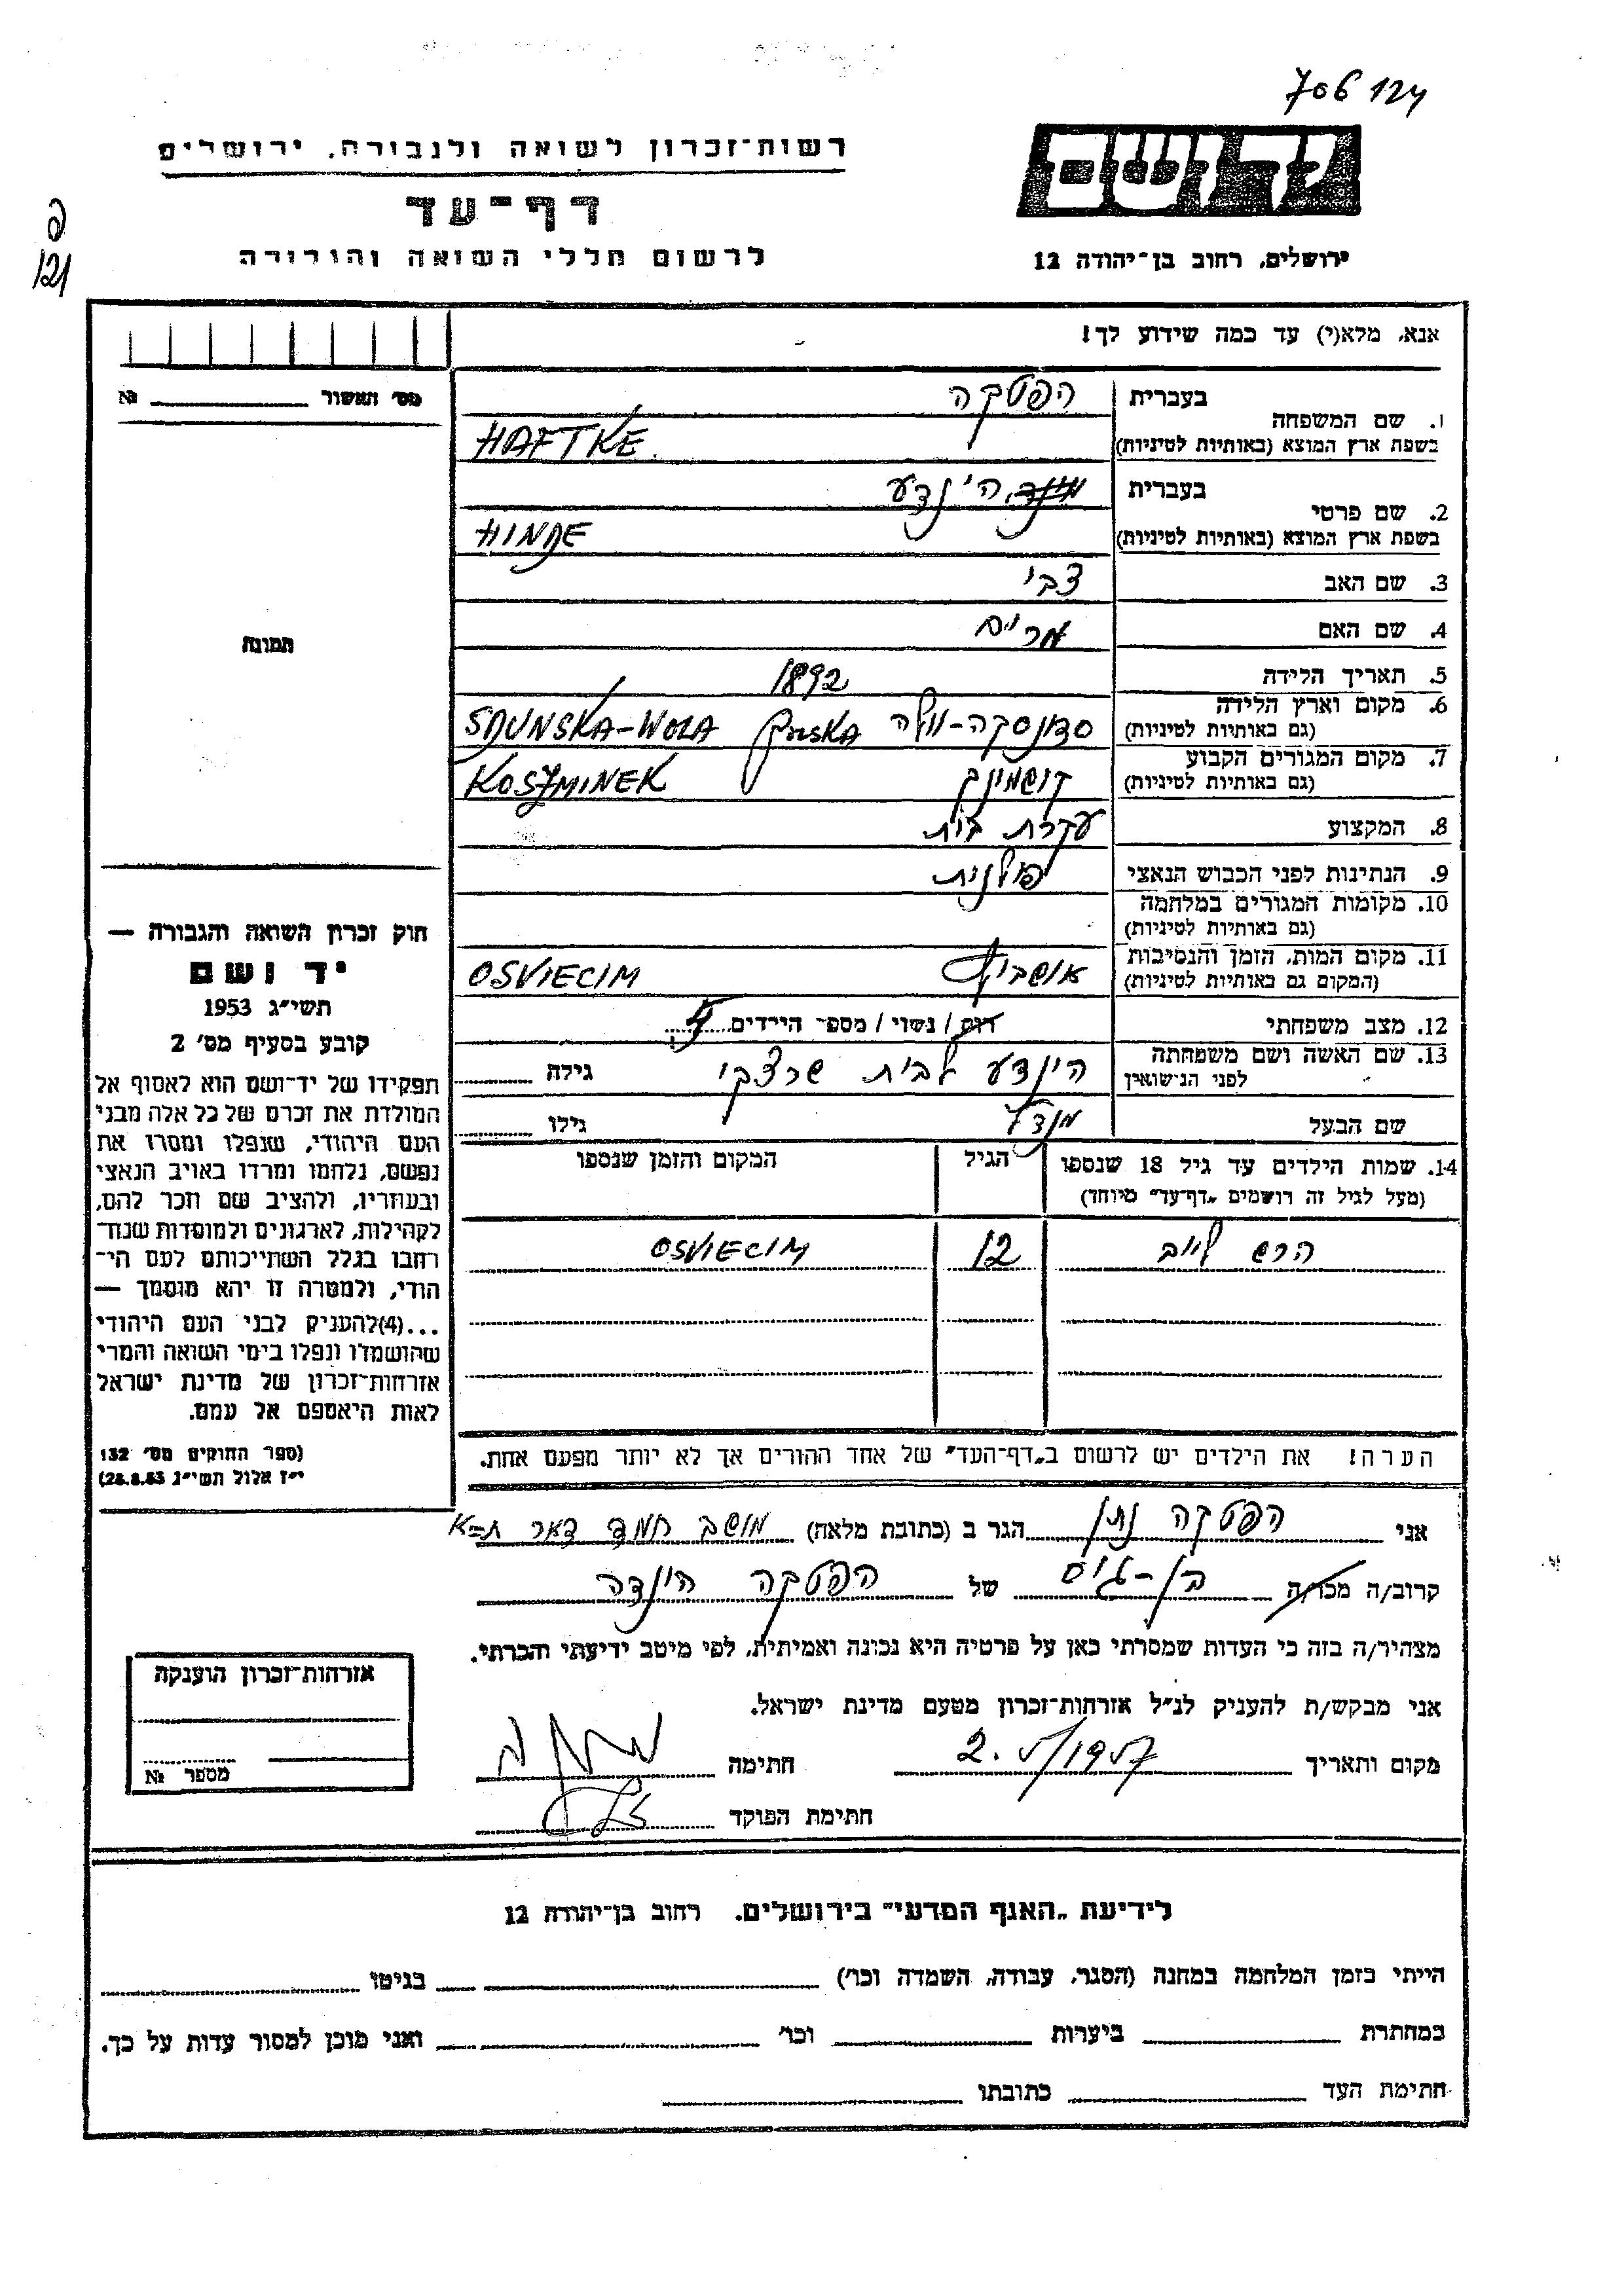 706 124
יד ושם
רשות־זכרון לשואה ולגבורה, ירושלים
דף־עד
לרשום חללי השואה והגבורה
ירושלים, רחוב בן־יהודה 12
121
אנא, מלא(י) עד כמה שידוע לך!
מס׳ האשור № 
1. שם המשפחה בעברית הפטקה
בשפת ארץ המוצא (באותיות לטיניות) HAFTKE
2. שם פרטי בעברית הינדע
בשפת ארץ המוצא (באותיות לטיניות) HINDE
3. שם האב צבי
4. שם האם מרים
5. תאריך הלידה 1892
6. מקום וארץ הלידה סדונסקה-וולה SDUNSKA-WOLA
(גם באותיות לטיניות)
7. מקום המגורים הקבוע KOSZMINEK
(גם באותיות לטיניות)
8. המקצוע עקרת בית
9. הנתינות לפני הכבוש הנאצי פולנית
10. מקומות המגורים במלחמה
(גם באותיות לטיניות)
11. מקום המות, הזמן והנסיבות אושביץ OSVIECIM
(המקום גם באותיות לטיניות)
12. מצב משפחתי רוק/ נשוי/ מספר הילדים
13. שם האשה ושם משפחתה הינדע לבית שרצקי גילה
לפני הנישואין
שם הבעל מנדל גילו
14. שמות הילדים עד גיל 18 שנספו הגיל המקום והזמן שנספו
(מעל לגיל זה רושמים „דף־עד״ מיוחד)
הרש לייב 12 OSVIECIM
הערה! את הילדים יש לרשום ב„דף־העד״ של אחד ההורים אך לא יותר מפעם אחת.
תמונה
חוק זכרון השואה והגבורה —
יד ושם
תשי״ג 1953
קובע בסעיף מס׳ 2
תפקידו של יד־ושם הוא לאסוף אל
המולדת את זכרם של כל אלה מבני
העם היהודי, שנפלו ומסרו את
נפשם, נלחמו ומרדו באויב הנאצי
ובעוזריו, ולהציב שם וזכר להם,
לקהילות, לארגונים ולמוסדות שנח־
רבו בגלל השתייכותם לעם הי־
הודי, ולמטרה זו יהא מוסמך —
...(4)להעניק לבני העם היהודי
שהושמדו ונפלו בימי השואה והמרי
אזרחות־זכרון של מדינת ישראל
לאות היאספם אל עמם.
(ספר החוקים מס׳ 132
י״ז אלול תשי״ג 28.8.53)
אני הפטקה נתן הגר ב (כתובת מלאה) מושב חמד דאר ת=א
קרוב/ה מכר/ה בן-גיס של הפטקה הינדה
מצהיר/ה בזה כי העדות שמסרתי כאן על פרטיה היא נכונה ואמיתית, לפי מיטב ידיעתי והכרתי.
אני מבקש/ת להעניק לנ״ל אזרחות־זכרון מטעם מדינת ישראל.
מקום ותאריך 2.5/1957 חתימה
חתימת הפוקד
אזרחות־זכרון הוענקה
מספר №
לידיעת „האגף המדעי״ בירושלים, רחוב בן־יהודה 12
הייתי בזמן המלחמה במחנה (הסגר, עבודה, השמדה וכו׳) בגיטו
במחתרת ביערות וכו׳ ואני מוכן למסור עדות על כך.
חתימת העד כתובתו